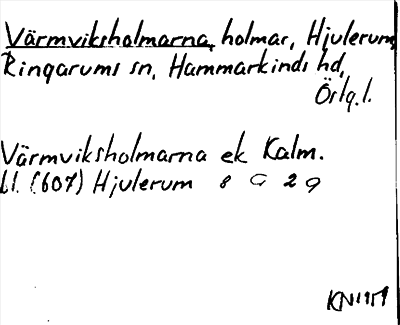 Värmviksholmarna, holmar, Hjulerum,
Ringarums sn, Hammarkinds hd,
Östg.l.
Värmviksholmarna ek Kalm.
Ll. (607) Hjulerum 8 G 2 g